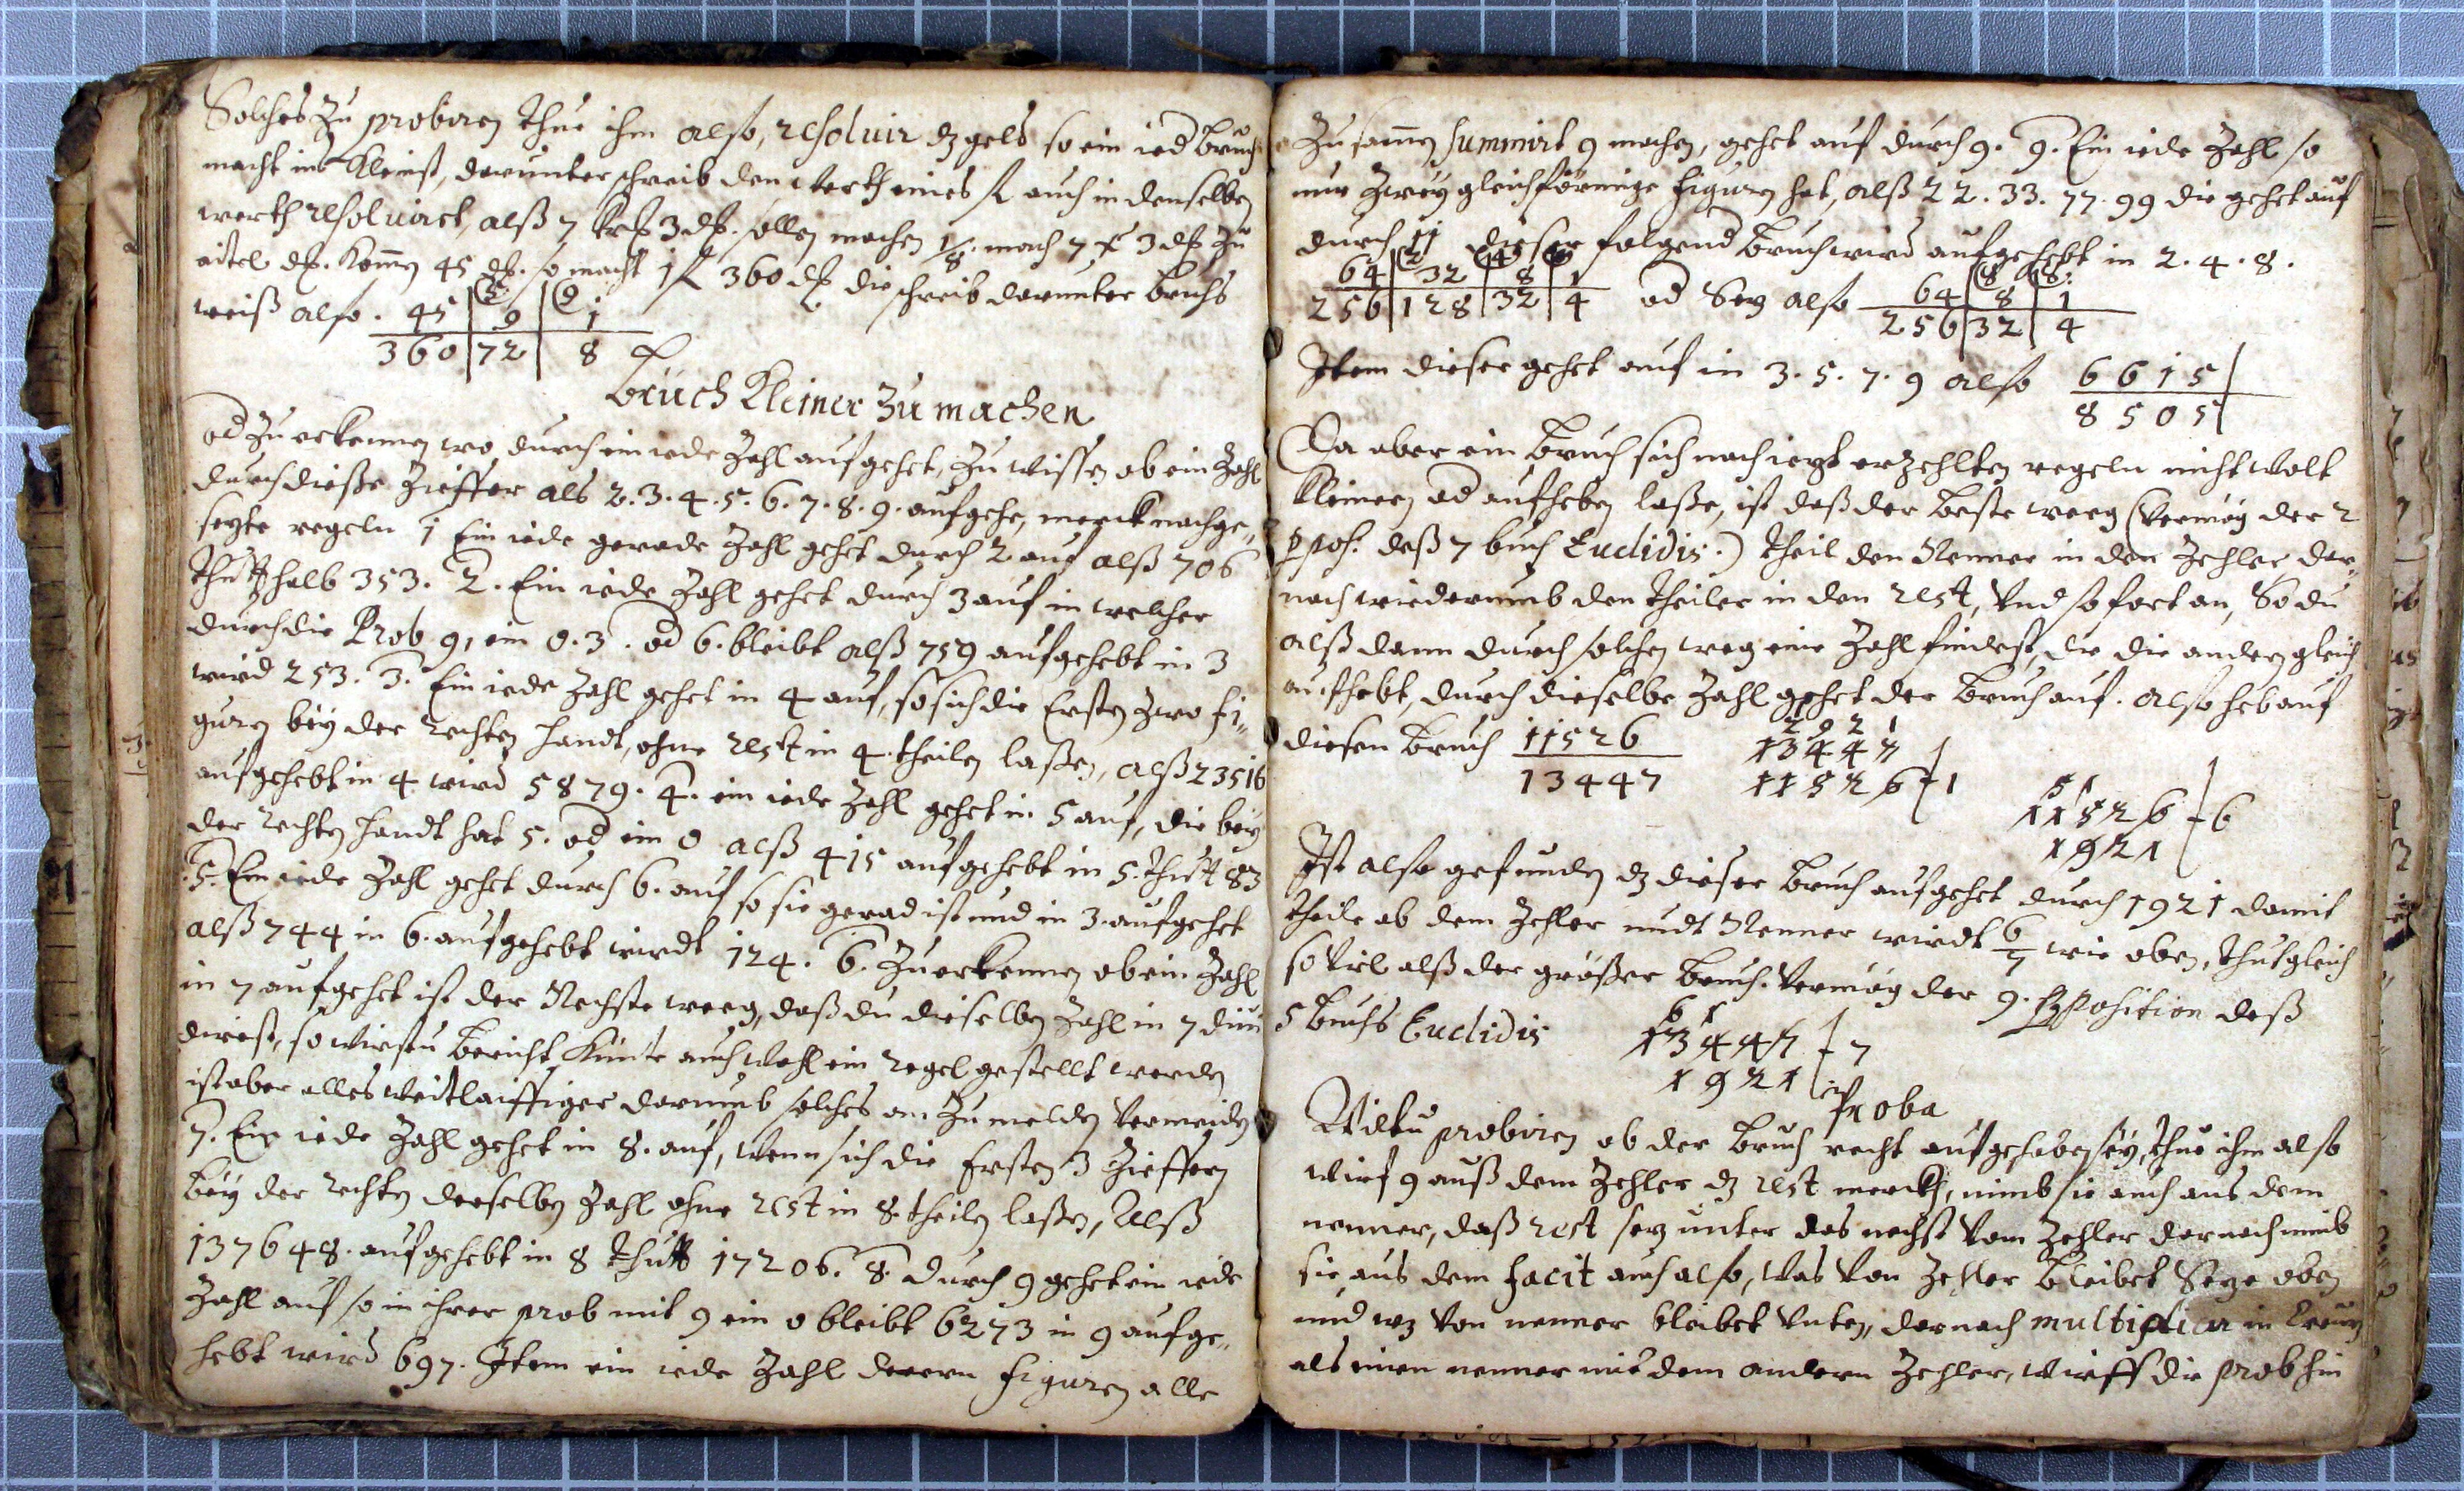 Solches zu probiren thue ihm also, resoluir dz gelt so ein ied Bruch
macht ins Kleinst, darunter schreib den werth eines fl auch in denselben
werth resoluirt, alß 7 ß 3 d. sollen machen 1/8. mach 7 ß 3 d zu
eitel d. kom̄en 45 d. so macht 1 fl 360 d die schreib darunter bruchs
weiß also. 45 | 9 | 1
360 | 72 | 8
Bruch Kleiner zu machen
od zu erkennen wo durch ein iede Zahl aufgehet, zu wissen ob ein Zahl
durch dieße Zieffer als 2. 3. 4. 5. 6. 7. 8. 9. aufgehe, merck nachge,,
sezte regeln 1 Ein iede gerade Zahl gehet durch 2 auf alß 706
thutt halb 353. 2. Ein iede Zahl gehet durch 3 auf in welcher
durch die Prob 9, ein 0. 3. od 6. bleibt alß 759 aufgehebt in 3
wird 253. 3. Ein iede Zahl gehet in 4 auf, so sich die Ersten zwo fi,,
guren bey der rechten handt, ohne rest in 4 theilen laßen, alß 23516
aufgehebt in 4 wird 5879. 4. ein iede Zahl gehet in 5 auf, die bey
der rechten handt hat 5. od ein 0 alß 415 aufgehebt in 5. thutt 83
5. Ein iede Zahl gehet durch 6. auf so sie gerad ist und in 3. aufgehet
alß 744 in 6. aufgehebt wirdt 124. 6. Zu erkennen ob ein Zahl
in 7 aufgehet ist der Nechste weeg, daß du dieselben Zahl in 7 diui
direst, so wirstu bericht Könte auch wohl ein regel gestellt werden
ist aber alles weitlaiffiger darumb solches an zu melden vermeiden
7. Ein iede Zahl gehet in 8. auf, wenn sich die Ersten 3 Zieffern
bey der rechten derselben Zahl ohne rest in 8 theilen laßen, Alß
137648. aufgehebt in 8 thutt 17206. 8. durch 9 gehet ein iede
Zahl auf so in ihrer prob mit 9 ein 0 bleibt 6273 in 9 aufge,,
hebt wird 697. Item ein iede Zahl deren figuren alle
zusam̄en summirt 9 machen, gehet auf durch 9. 9. Ein iede Zahl so
nur zwey gleichförmige figuren hat, alß 22. 33. 77. 99 die gehet auf
durch 11 dieser folgend bruch wird aufgehebt in 2. 4. 8.
64 | 32 | 8 | 1
256 | 128 | 32 | 4 od Sez also 64 | 8 | 1
256 | 32 | 4
Item dieser gehet auf in 3. 5. 7. 9 also 6615
8505
Da aber ein bruch sich nach iezt erzehlten regeln nicht wolt
kleinern od aufheben laße, ist daß der beste weeg (vermög der 2
ppos. deß 7 buch Euclidis.) theil den Nenner in den Zehler dar,,
nach wiederumb den theiler in den rest, vnd so fort an, So du
alß dann durch solchen weg eine Zahl findest, die die andern gleich
aufhebt, durch dieselbe Zahl gehet der bruch auf. also heb auf
diesen bruch 11526
13447
1921
13447
11526 | 1
51
11526 | 6
1921
Ist also gefunden dz dieser bruch aufgehet durch 1921 damit
theile ab dem Zehler undt Nenner wirdt 6/7 wie oben, thut gleich
so viel alß der größer bruch. vermög der 9. pposition deß
5 buchs Euclidis
61
13447 | 7
1921
Proba
Wiltu probiren ob der bruch recht aufgehoben sey, thue ihm also
wirf 9 auß dem Zehler dz rest merck, nimb sie auch aus dem
nenner, daß rest sez unter das nechst vom Zehler darnach nimb
sie aus dem facit auch also, was von Zehler bleibet Seze oben
und wz von nenner bleibet vnten, darnach multiplicir in Creuz
als einen nenner mit dem andern Zehler, wirff die prob hin